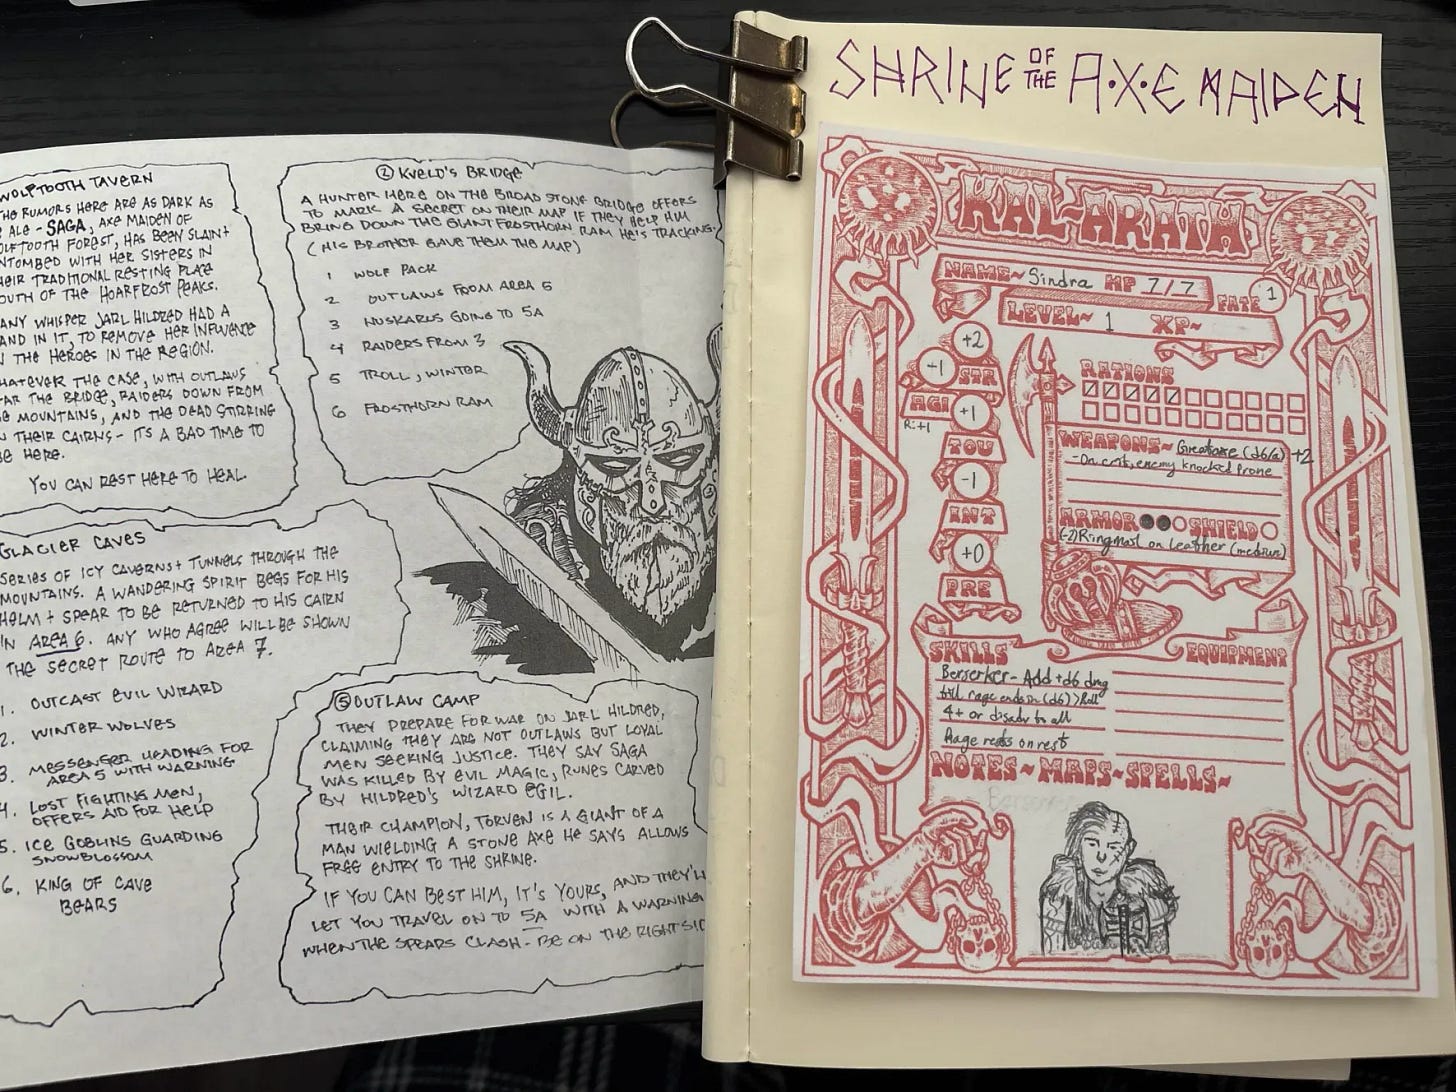 WOLFTOOTH TAVERN
THE RUMORS HERE ARE AS DARK AS
ALE - SAGA, AXE MAIDEN OF
WOLFTOOTH FOREST, HAS BEEN SLAIN +
ENTOMBED WITH HER SISTERS IN
THEIR TRADITIONAL RESTING PLACE
SOUTH OF THE HOARFROST PEAKS.
MANY WHISPER JARL HILDRED HAD A
HAND IN IT, TO REMOVE HER INFLUENCE
ON THE HEROES IN THE REGION.
WHATEVER THE CASE, WITH OUTLAWS
NEAR THE BRIDGE, RAIDERS DOWN FROM
THE MOUNTAINS, AND THE DEAD STIRRING
IN THEIR CAIRNS - ITS A BAD TIME TO
BE HERE.
YOU CAN REST HERE TO HEAL.
② KVELD'S BRIDGE
A HUNTER HERE ON THE BROAD STONE BRIDGE OFFERS
TO MARK A SECRET ON THEIR MAP IF THEY HELP HIM
BRING DOWN THE GIANT FROSTHORN RAM HE'S TRACKING.
(HIS BROTHER GAVE THEM THE MAP)
1 WOLF PACK
2 OUTLAWS FROM AREA 5
3 HUSKARLS GOING TO 5A
4 RAIDERS FROM 3
5 TROLL, WINTER
6 FROSTHORN RAM
GLACIER CAVES
SERIES OF ICY CAVERNS + TUNNELS THROUGH THE
MOUNTAINS. A WANDERING SPIRIT BEGS FOR HIS
HELM + SPEAR TO BE RETURNED TO HIS CAIRN
IN AREA 6. ANY WHO AGREE WILL BE SHOWN
THE SECRET ROUTE TO AREA 7.
1. OUTCAST EVIL WIZARD
2. WINTER WOLVES
3. MESSENGER HEADING FOR
AREA 5 WITH WARNING
4. LOST FIGHTING MEN,
OFFERS AID FOR HELP
5. ICE GOBLINS GUARDING
SNOWBLOSSOM
6. KING OF CAVE
BEARS
⑤ OUTLAW CAMP
THEY PREPARE FOR WAR ON JARL HILDRED,
CLAIMING THEY ARE NOT OUTLAWS BUT LOYAL
MEN SEEKING JUSTICE. THEY SAY SAGA
WAS KILLED BY EVIL MAGIC, RUNES CARVED
BY HILDRED'S WIZARD EGIL.
THEIR CHAMPION, TORVEN IS A GIANT OF A
MAN WIELDING A STONE AXE HE SAYS ALLOWS
FREE ENTRY TO THE SHRINE.
IF YOU CAN BEST HIM, IT'S YOURS, AND THEY'LL
LET YOU TRAVEL ON TO 5A WITH A WARNING
WHEN THE SPEARS CLASH - BE ON THE RIGHT SIDE
SHRINE OF THE A·X·E MAIDEN
KAL-ARATH
NAME~ Sindra HP 7/7
FATE 1
LEVEL~ 1 XP~
+2
STR
-1
AGI
R:+1
+1
TOU
-1
INT
+0
PRE
RATIONS
WEAPONS~ Greataxe (d6/a) +2
-On crit, enemy knocked prone
ARMOR SHIELD
(-2) Ringmail on Leather (medium)
SKILLS
Berserker - Add +d6 dmg
till rage ends in (d6) > Roll
4+ or disadv to all
Rage resets on rest
EQUIPMENT
NOTES~MAPS~SPELLS~
Berserker